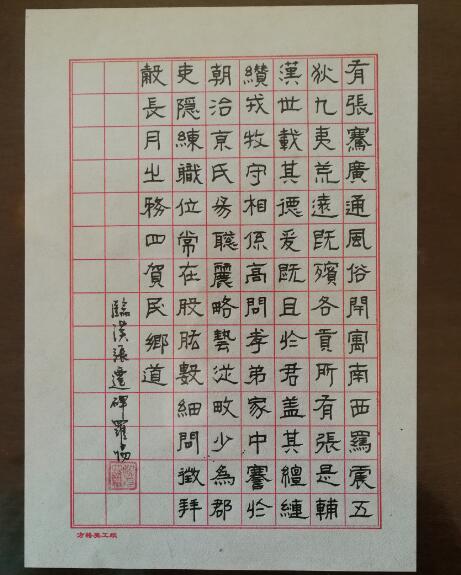 有張騫廣通風俗開寓南西羈震五
狄九夷荒遠既殯各貢所有張是輔
漢世載其德爰既且於君盖其繵縺
纘戎牧守相係高問孝弟家中謇於
朝治京氏易聰麗略藝從畋少為郡
吏隱練職位常在股肱數細問徵拜
穀長月之務四賀民鄉道
臨漢張遷碑羅
方格美工紙